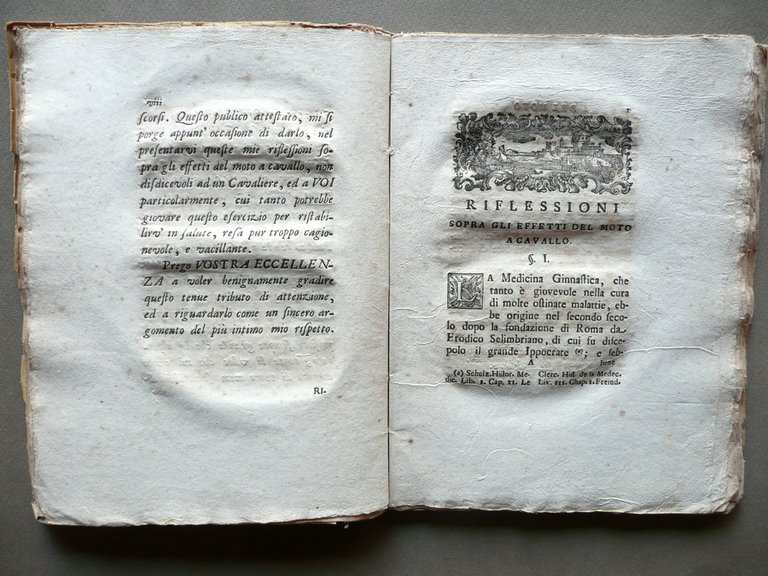 viii
scorsi. Questo publico attestato, mi si
porge appunt' occasione di darlo, nel
presentarvi queste mie riflessioni so-
pra gli effetti del moto a cavallo, non
disdicevoli ad un Cavaliere, ed a VOI
particolarmente, cui tanto potrebbe
giovare questo esercizio per ristabi-
lirv' in salute, resa pur troppo cagio-
nevole, e vacillante.
Prego VOSTRA ECCELLEN-
ZA a voler benignamente gradire
questo tenue tributo di attenzione,
ed a riguardarlo come un sincero ar-
gomento del più intimo mio rispetto.
RI-
RIFLESSIONI
SOPRA GLI EFFETTI DEL MOTO
A CAVALLO.
§. I.
LA Medicina Ginnastica, che
tanto è giovevole nella cura
di molte ostinate malattie, eb-
be origine nel secondo seco-
lo dopo la fondazione di Roma da
Erodico Selimbriano, di cui fu disce-
polo il grande Ippocrate (a); e seb-
A
bene
(a) Schulz. Histor. Me-
dic. Lib. I. Cap. XI. Le
Clerc. Hist. de la Medec.
Liv. III. Chap. I. Freind.